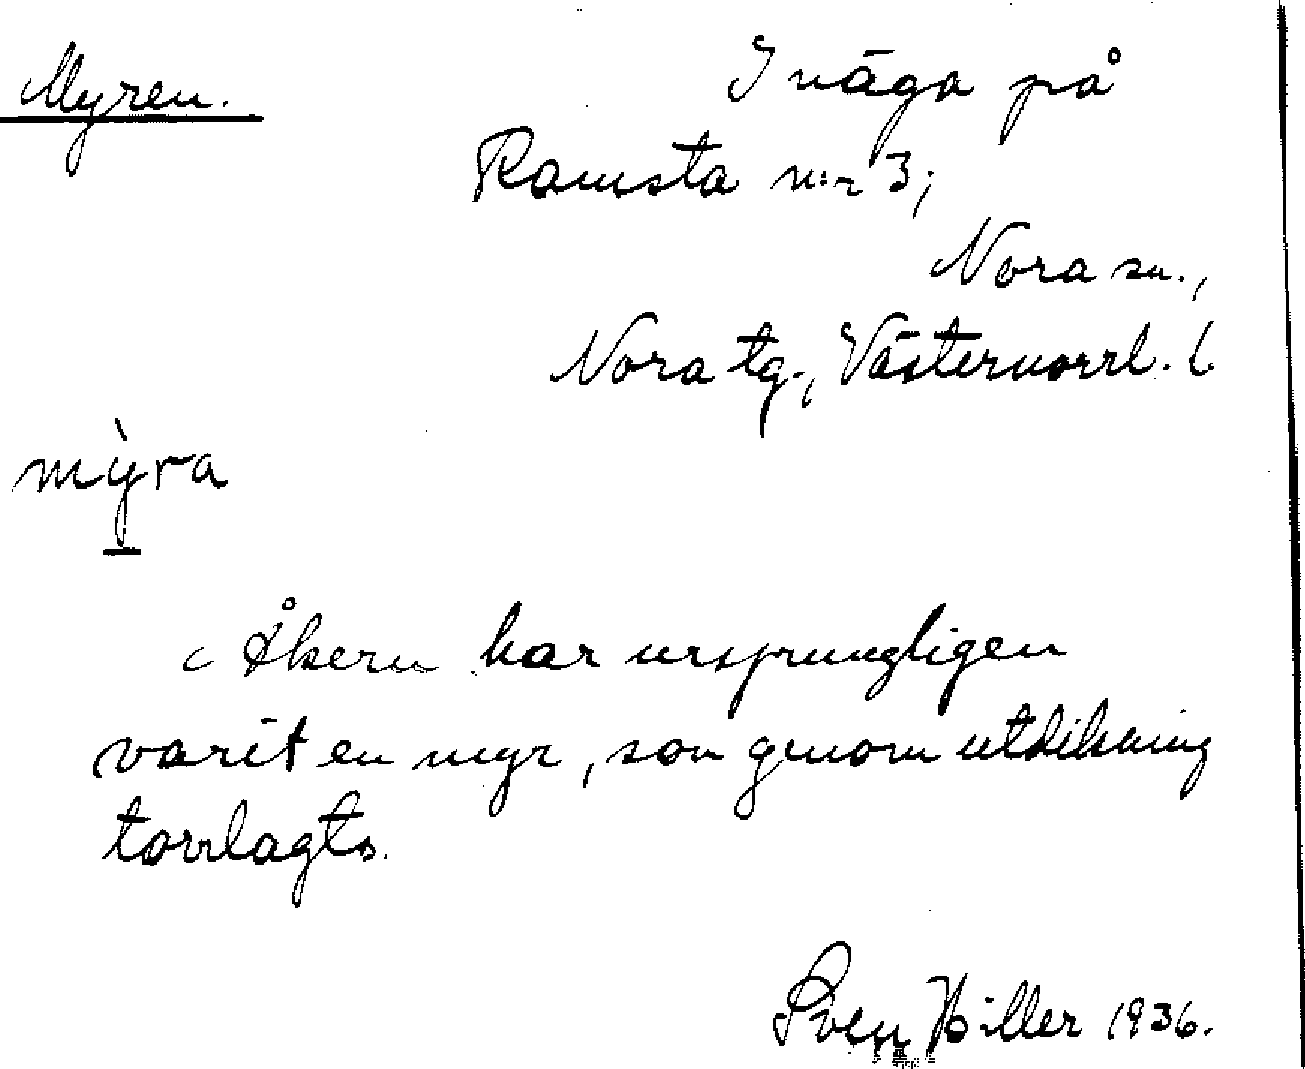 Myren.
I väga på
Ramsta n:r 3,
Nora sn.,
Nora tg., Västernorrl. l.
mỳra
Åkern har ursprungligen
varit en myr, som genom utdikning
torrlagts.
Sven Hiller 1936.